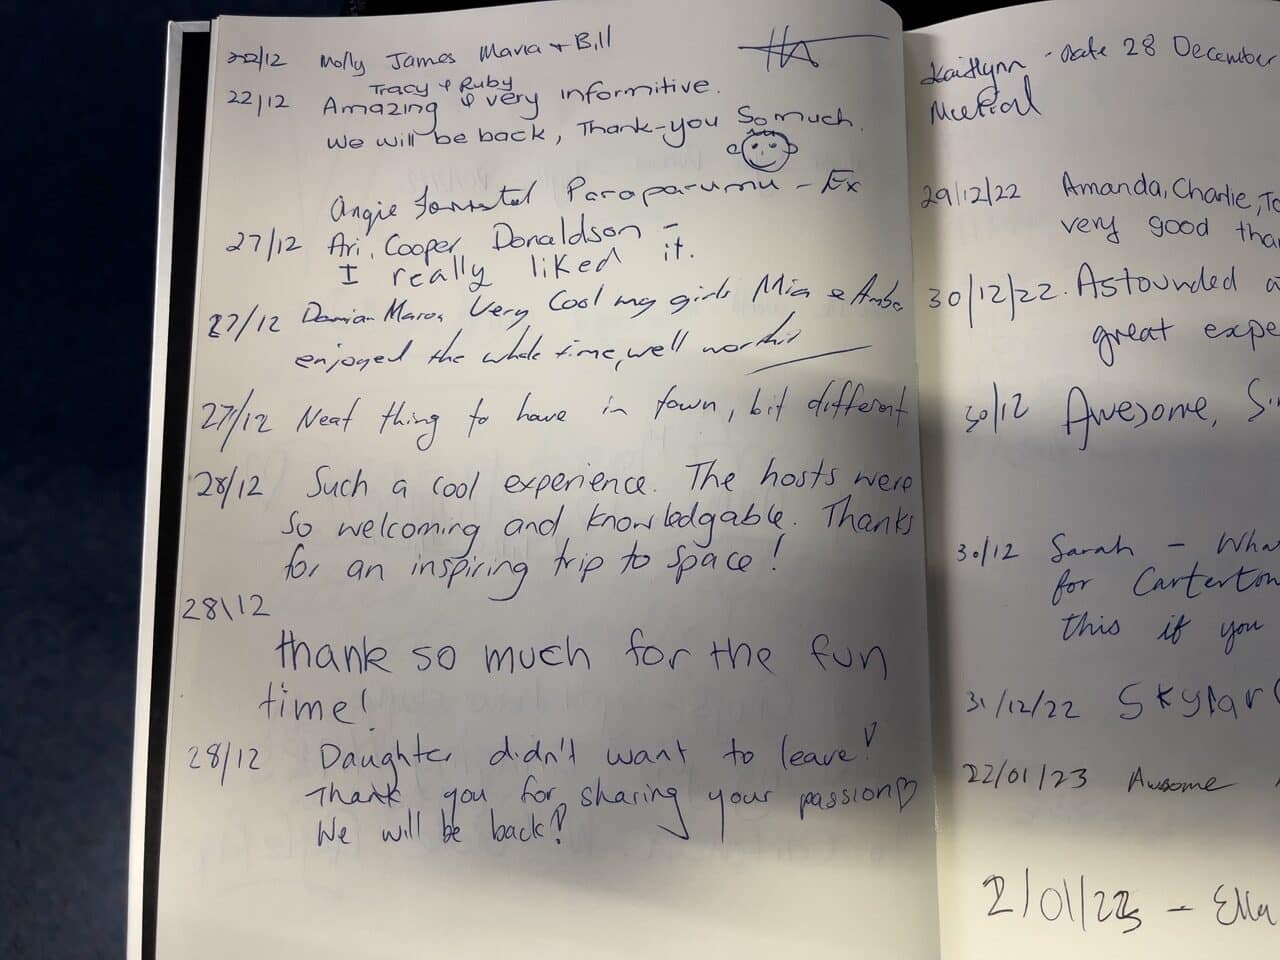 22/12 Molly James Maria + Bill
Tracy & Ruby
22/12 Amazing & very informitive.
We will be back, Thank-you So much.
Angie Paraparumu - Ex
27/12 Ari, Cooper Donaldson -
I really liked it.
27/12 Damian Very Cool my girls Mia &
enjoyed the whole time, well worth it
27/12 Neat thing to have in town, bit different
28/12 Such a cool experience. The hosts were
so welcoming and knowledgable. Thanks
for an inspiring trip to space!
28\12
thank so much for the fun
time!
28/12 Daughter didn't want to leave!
Thank you for sharing your passion♡
We will be back!
Kaitlynn - Date 28 December
29/12/22 Amanda, Charlie, To
very good than
30/12/22. Astounded a
great expe
30/12 Awesome, Si
30/12 Sarah - Wha
for Carterton
this if you
31/12/22 Skylar
22/01/23 Awsome
2/01/23 - Ella